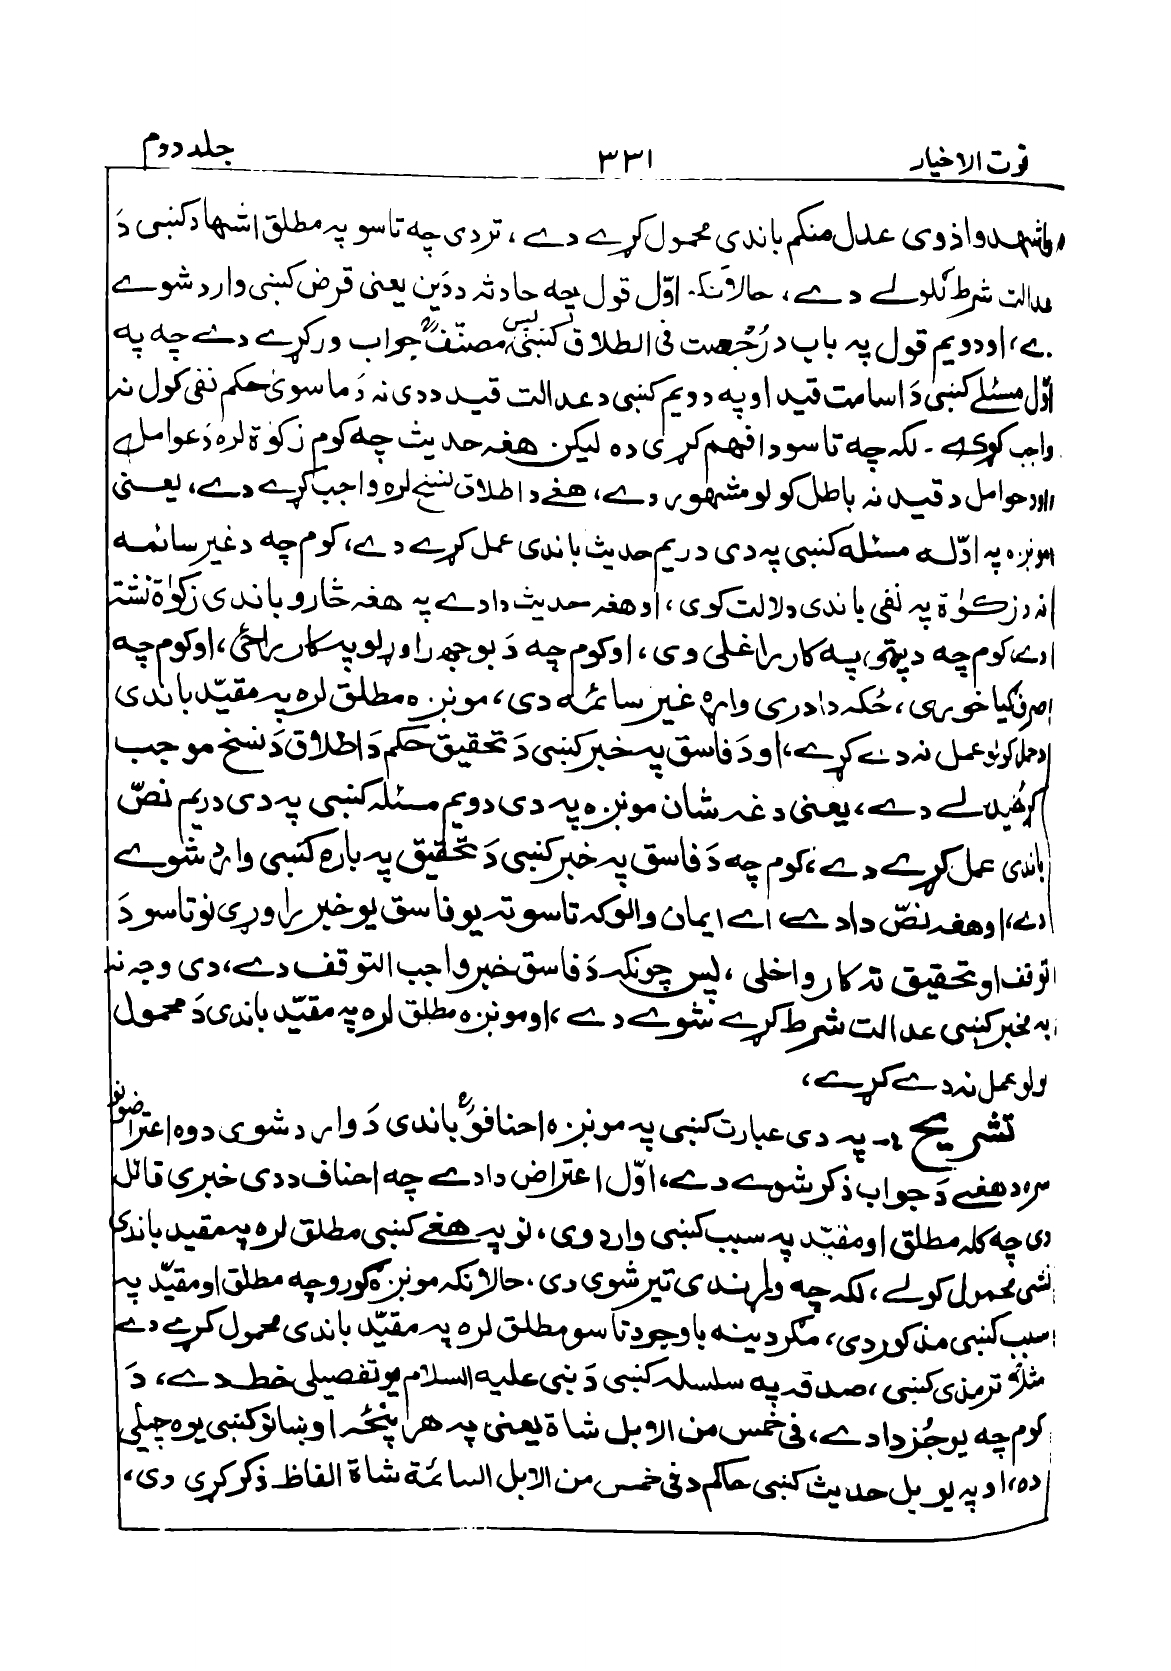 قوت الاخیار ۳۳۱ جلد دوم
واشهدوا ذوی عدل منکم باندی محمول کړے دے ، تردی چه تاسو په مطلق اشهاد کښی دَ
عدالت شرط لګولے دے ، حالانکه اوّل قول چه حادثه د دَین یعنی قرض کښی وارد شوے
دے ، او دویم قول په باب د رُجعت فی الطلاق کښی ، پس مصنّفؒ جواب ورکړے دے چه په
اوّل مسئلے کښی دَ اسامت قید او په دویم کښی د عدالت قید د دی نه دَ ما سویٰ حکم نفی کول نه
واجب کوی ۔ لکه چه تاسو دا فهم کړی ده لیکن هغه حدیث چه کوم زکوٰة لره دَ عوامل
او د حوامل د قید نه باطل کولو مشهور دے ، هغے د اطلاق نسخ لره واجب کړے دے ، یعنی
مونږه په اوّله مسئله کښی په دی دریم حدیث باندی عمل کړے دے ، کوم چه د غیر سائمه
نه د زکوٰة په نفی باندی دلالت کوی ، او هغه حدیث دا دے په هغه څاروو باندی زکوٰة نشته
دے ، کوم چه د پټی په کار راغلی وی ، او کوم چه دَ بوجھ راوړلو په کار راځی ، او کوم چه
صرف ګیا خوری ، ځکه دا دری واړه غیر سائمه دی ، مونږه مطلق لره په مقیّد باندی
د حمل کولو عمل نه دے کړے ، او دَ فاسق په خبر کښی دَ تحقیق حکم دَ اطلاق دَ نسخ موجب
ګرځیدلے دے ، یعنی دغه شان مونږه په دی دویم مسئله کښی په دی دریم نصّ
باندی عمل کړے دے ، کوم چه دَ فاسق په خبر کښی دَ تحقیق په باره کښی وارد شوے
دے ، او هغه نصّ دا دے ، اے ایمان والو که تاسو ته یو فاسق یو خبر راوړی نو تاسو دَ
توقف او تحقیق ته کار واخلی ، پس چونکه دَ فاسق خبر واجب التوقف دے ، دی وجه نه
په مخبر کښی عدالت شرط کړے شوے دے ، او مونږه مطلق لره په مقیّد باندی دَ محمول
ولو عمل نه دے کړے ،
تشریح :- په دی عبارت کښی په مونږه احنافوؒ باندی دَ وارد شوی دوه اعتراضونو
سره د هغے دَ جواب ذکر شوے دے ، اوّل اعتراض دا دے چه احناف د دی خبری قائل
دی چه کله مطلق او مقیّد په سبب کښی وارد وی ، نو په هغے کښی مطلق لره په مقید باندی
نشی محمول کولے ، لکه چه وړاندی تیر شوی دی ، حالانکه مونږه ګورو چه مطلق او مقیّد په
سبب کښی مذکور دی ، مګر د ینه باوجود تاسو مطلق لره په مقیّد باندی محمول کړے دے
مثلاً ترمذی کښی ، صدقه په سلسله کښی دَ نبی علیه السلام یو تفصیلی خط دے ، دَ
کوم چه یو جُزدا دے ، فی خمس من الابل شاة یعنی په هر پنځه اوښانو کښی یوه چیلی
ده ، او په یو بل حدیث کښی حاکم د فی خمس من الابل السائمة شاة الفاظ ذکر کړی دی ،